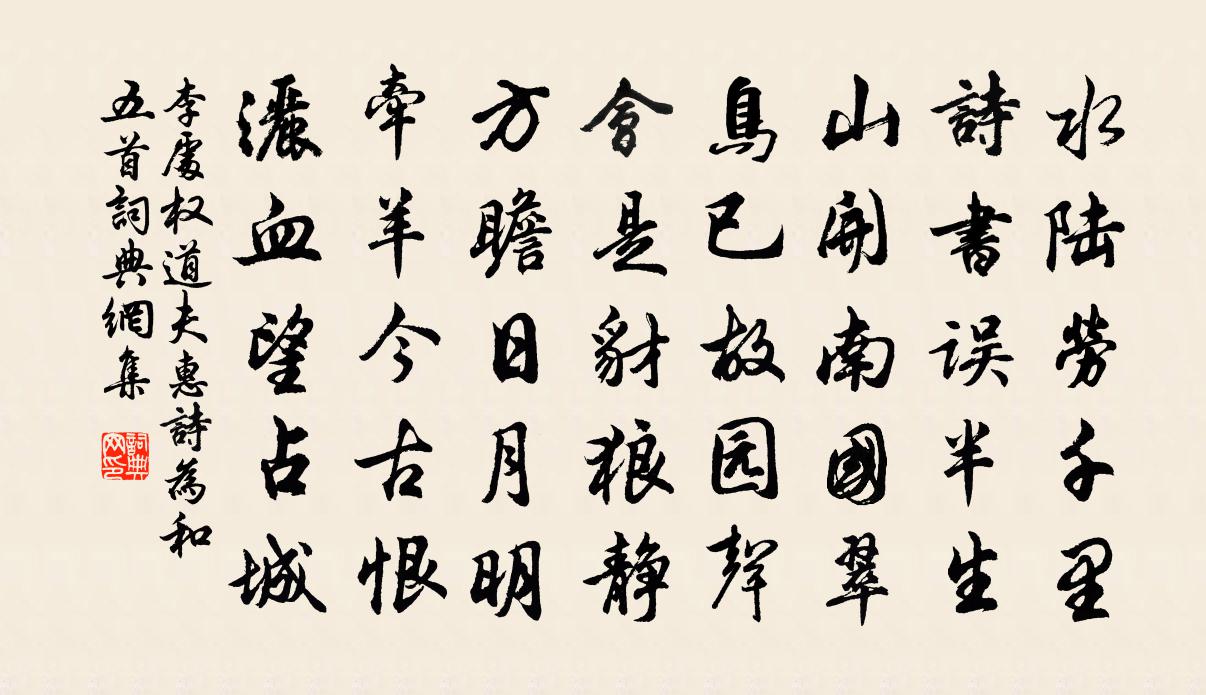 水陆劳千里
詩書误半生
山開南國翠
鳥已故园聲
會是豺狼静
方瞻日月明
牽羊今古恨
灑血望占城
李處权道夫惠詩為和
五首詞典網集
詞典网印